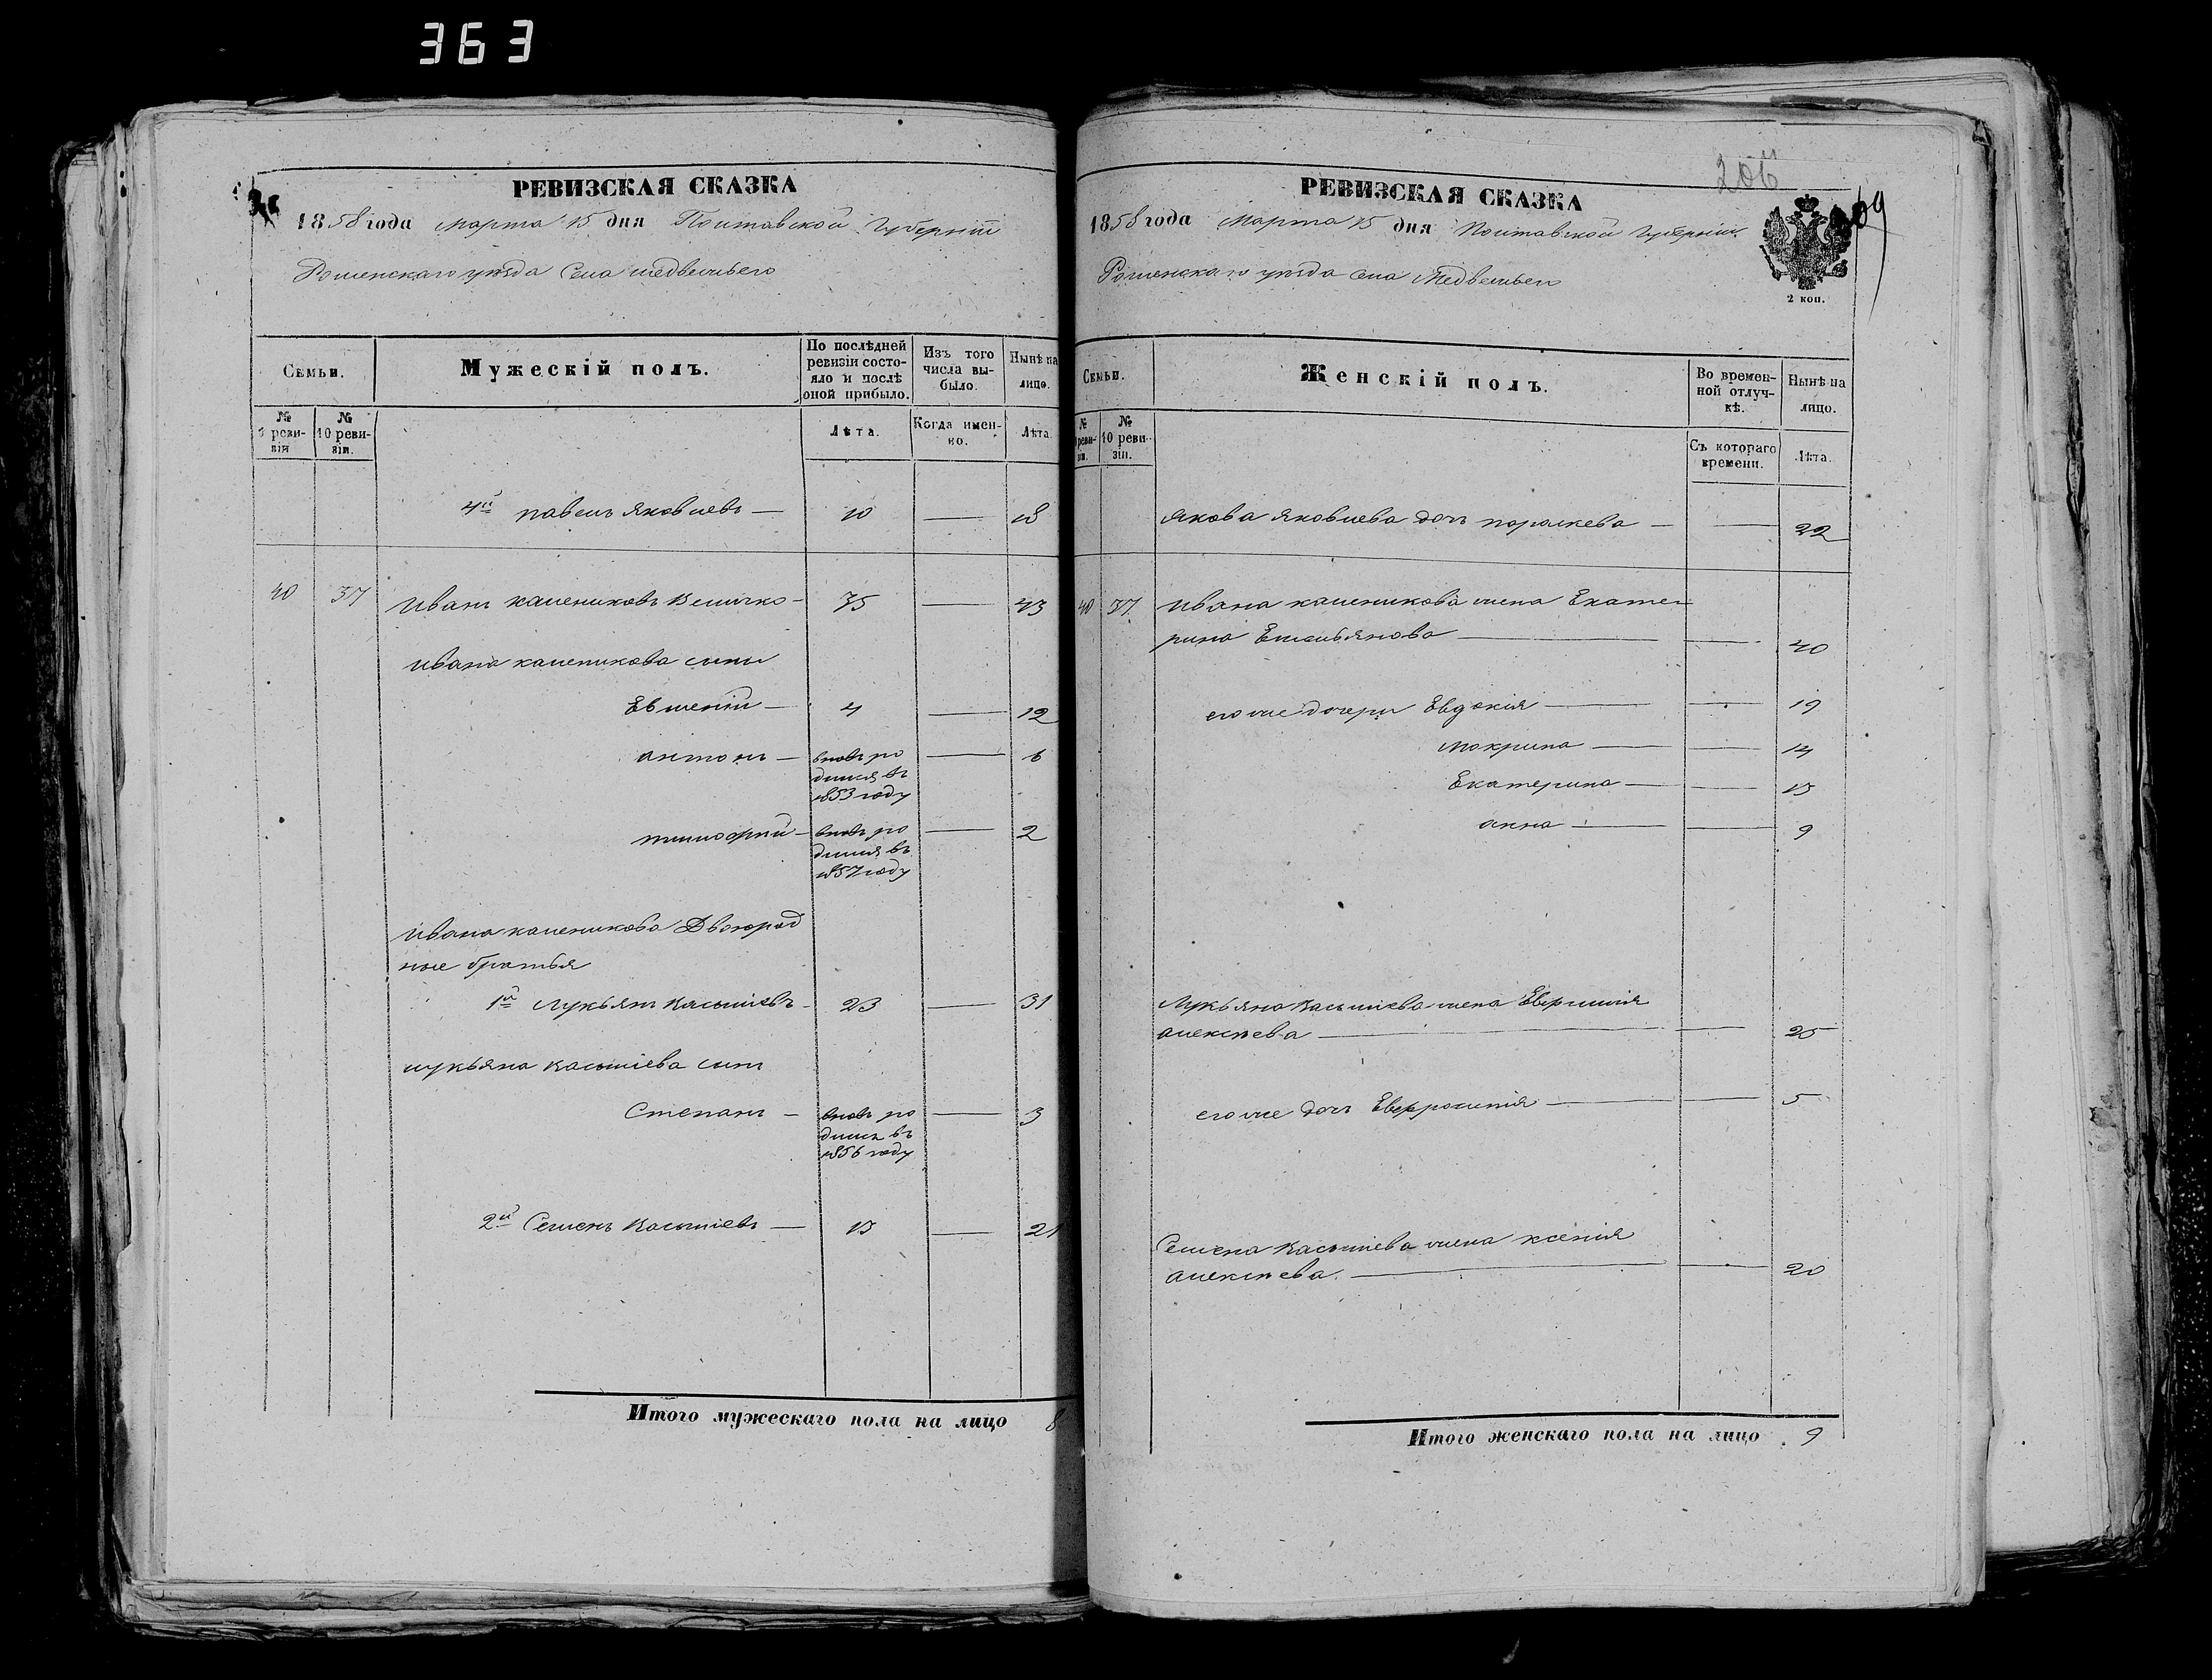 363
РЕВИЗСКАЯ СКАЗКА
1858 года марта 15 дня Полтавской Губерніи
Роменскаго уезда Села медвежьего
Семьи.
Мужескій полъ.
По послѣдней ревизіи состояло и послѣ оной прибыло.
Изъ того числа выбыло.
Нынѣ на лицо.
№ ревизіи
№ 10 ревизіи.
Лѣта.
Когда именно.
Лѣта
4й павелъ яковлевъ — 10 — 18
40 37 Иванъ калениковъ Величко — 35 — 43
Ивана каленикова сыны
Евгеній — 4 — 12
антонъ — вновь ро — 6
дился въ
1853 году
тимофій — вновь ро — 2
дился въ
1857 году
Ивана каленикова Двоюрод
ные братья
1й Лукьянъ Касьяновъ — 23 — 31
лукьяна касьянова сынъ
Степанъ — вновь ро — 3
дился въ
1856 году
2й Семенъ — 15 — 21
Итого мужескаго пола на лицо 8
206
РЕВИЗСКАЯ СКАЗКА
1858 года Марта 15 дня Полтавской Губерніи
Роменскаго уезда села Медвежьего
2 коп.
Семьи.
Женскій полъ.
Во временной отлучкѣ.
Нынѣ на лицо.
№ ревизіи.
№ 10 ревизіи.
Съ котораго времени.
Лѣта.
якова яковлева дочь параскева — — 22
40 37 Ивана каленикова жена Екате
рина Емельянова — — 40
его же дочери Евдокія — — 19
Мокрина — — 14
Екатерина — — 13
анна — — 9
Лукьяна жена
алексеева — — 25
его же дочь Евфросинія — — 5
Семена жена ксенія
алексеева — — 20
Итого женскаго пола на лицо 9